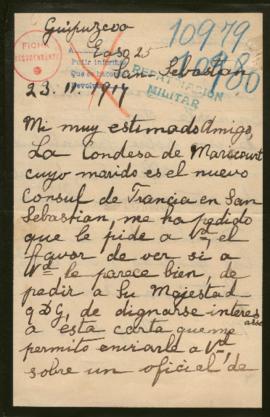 Guipuzcoa
10979
Easo 25
10980
San Sebastian
FICHA
Pedir informes
REPATRIACIÓN
MILITAR
23. 11. 1917
Mi muy estimado Amigo,
La Condesa de Maricourt
cuyo marido es el nuevo
Consul de Francia en San
Sebastian, me ha pedido
que le pide a Vd, el
favor de ver si a
Vd le parece bien, de
pedir a Su Majestad
q D G, de dignarse interes
arse
a esta carta que me
permito enviarle a Vd
sobre un oficial de